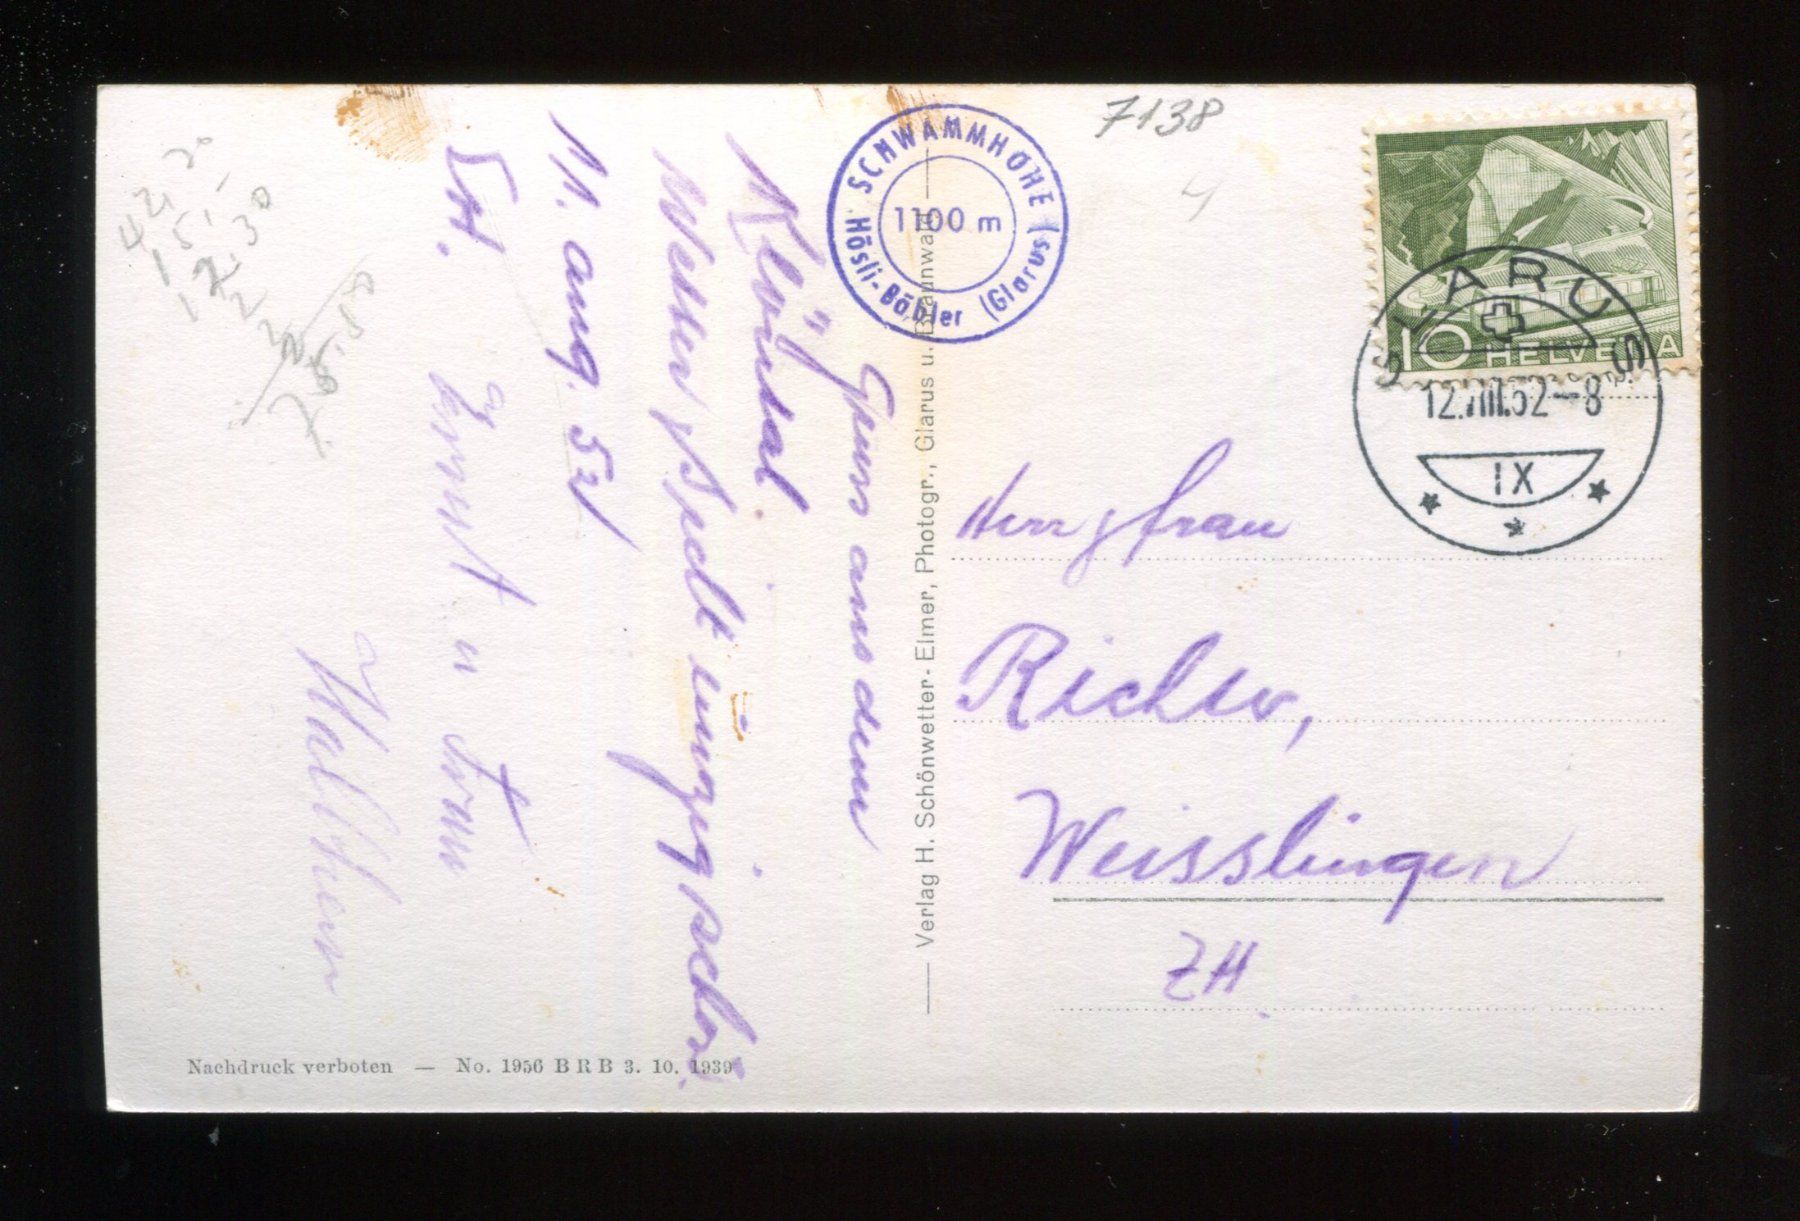 7138
SCHWAMMHÖHE (Glarus)
1100 m
H. Hösli-Bäbler (Glarus)
10 HELVETIA
GLARUS
12.VIII.52–8
IX
Gruss aus dem
Klöntal.
Wetter spielt
11. Aug. 52
Ernst u Frau
Herr & Frau
Richter,
Weisslingen
ZH
Verlag H. Schönwetter-Elmer, Photogr., Glarus u. Braunwald
Nachdruck verboten — No. 1956 B R B 3. 10. 1939